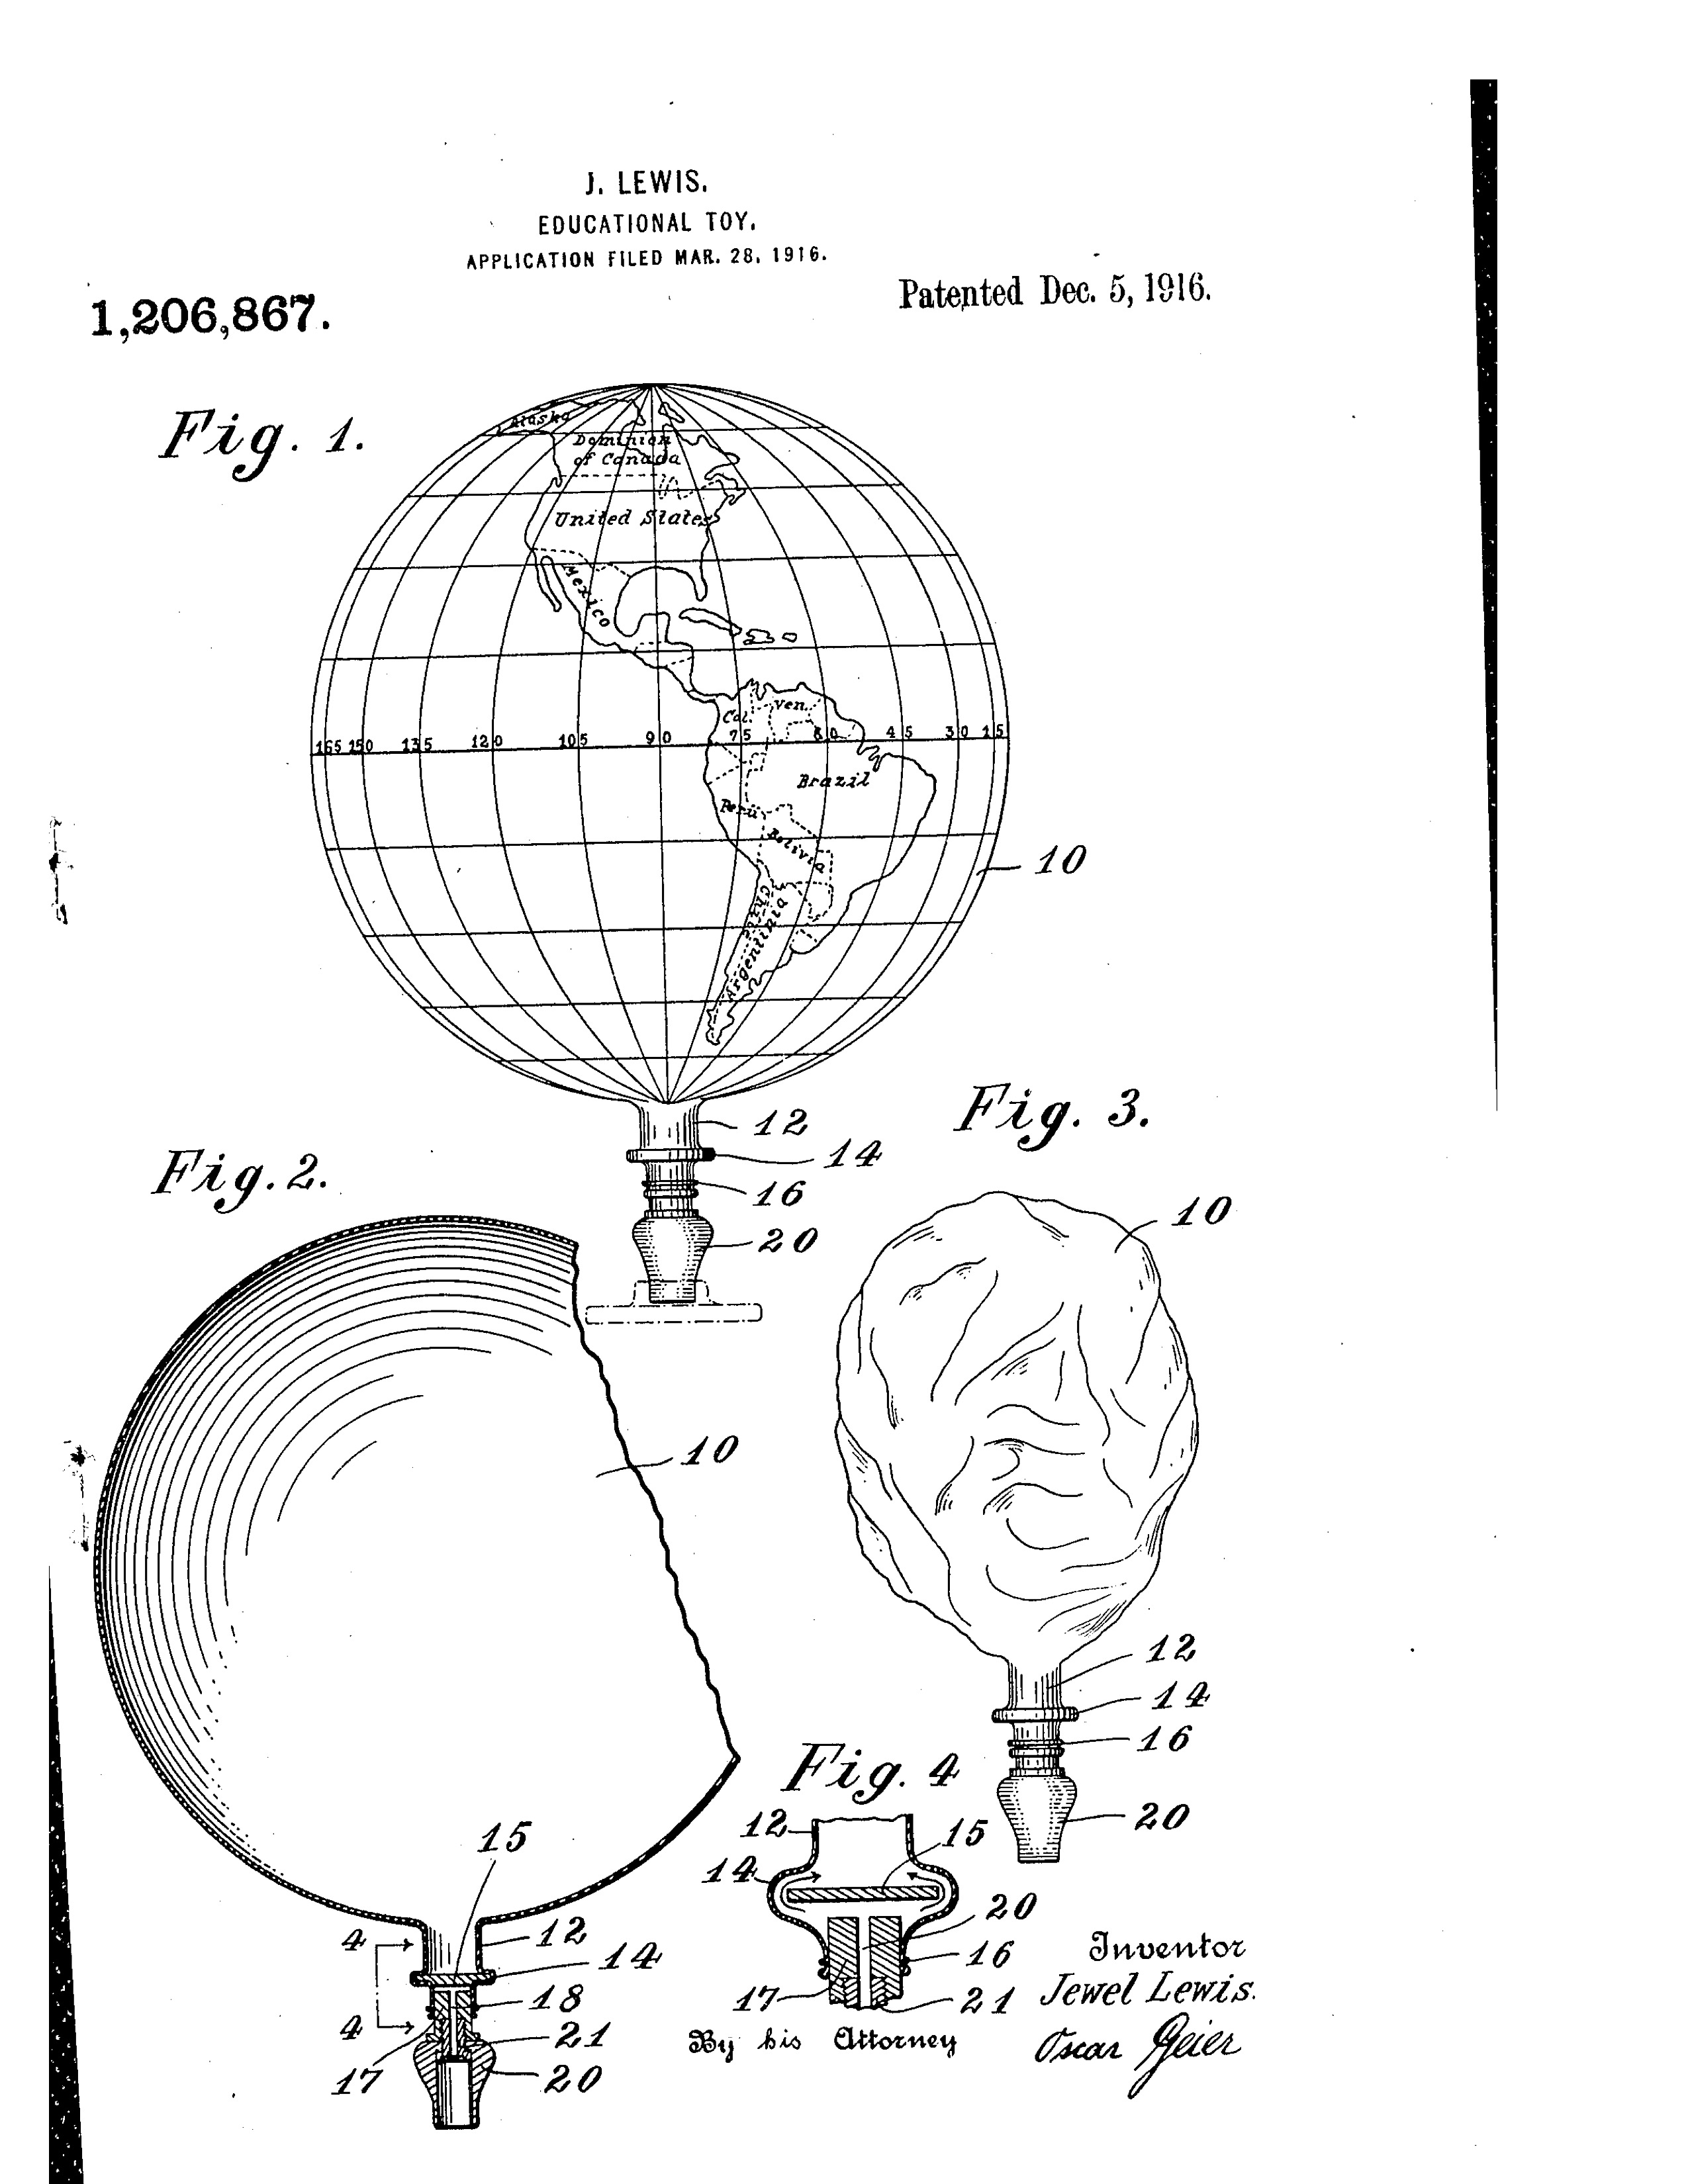 J. LEWIS.
EDUCATIONAL TOY.
APPLICATION FILED MAR. 28, 1916.
1,206,867.
Patented Dec. 5, 1916.
Fig. 1.
Alaska
Dominion
of Canada
United States
Mexico
Col.
Ven.
165 150 135 120 105 90 75 60 45 30 15
Brazil
Peru
Bolivia
Chile
Argentinia
10
12
14
16
20
Fig. 2.
10
15
4
12
14
18
4
21
17
20
Fig. 3.
10
12
14
16
20
Fig. 4
12
15
14
20
16
17
21
Inventor
Jewel Lewis.
By his Attorney
Oscar Geier